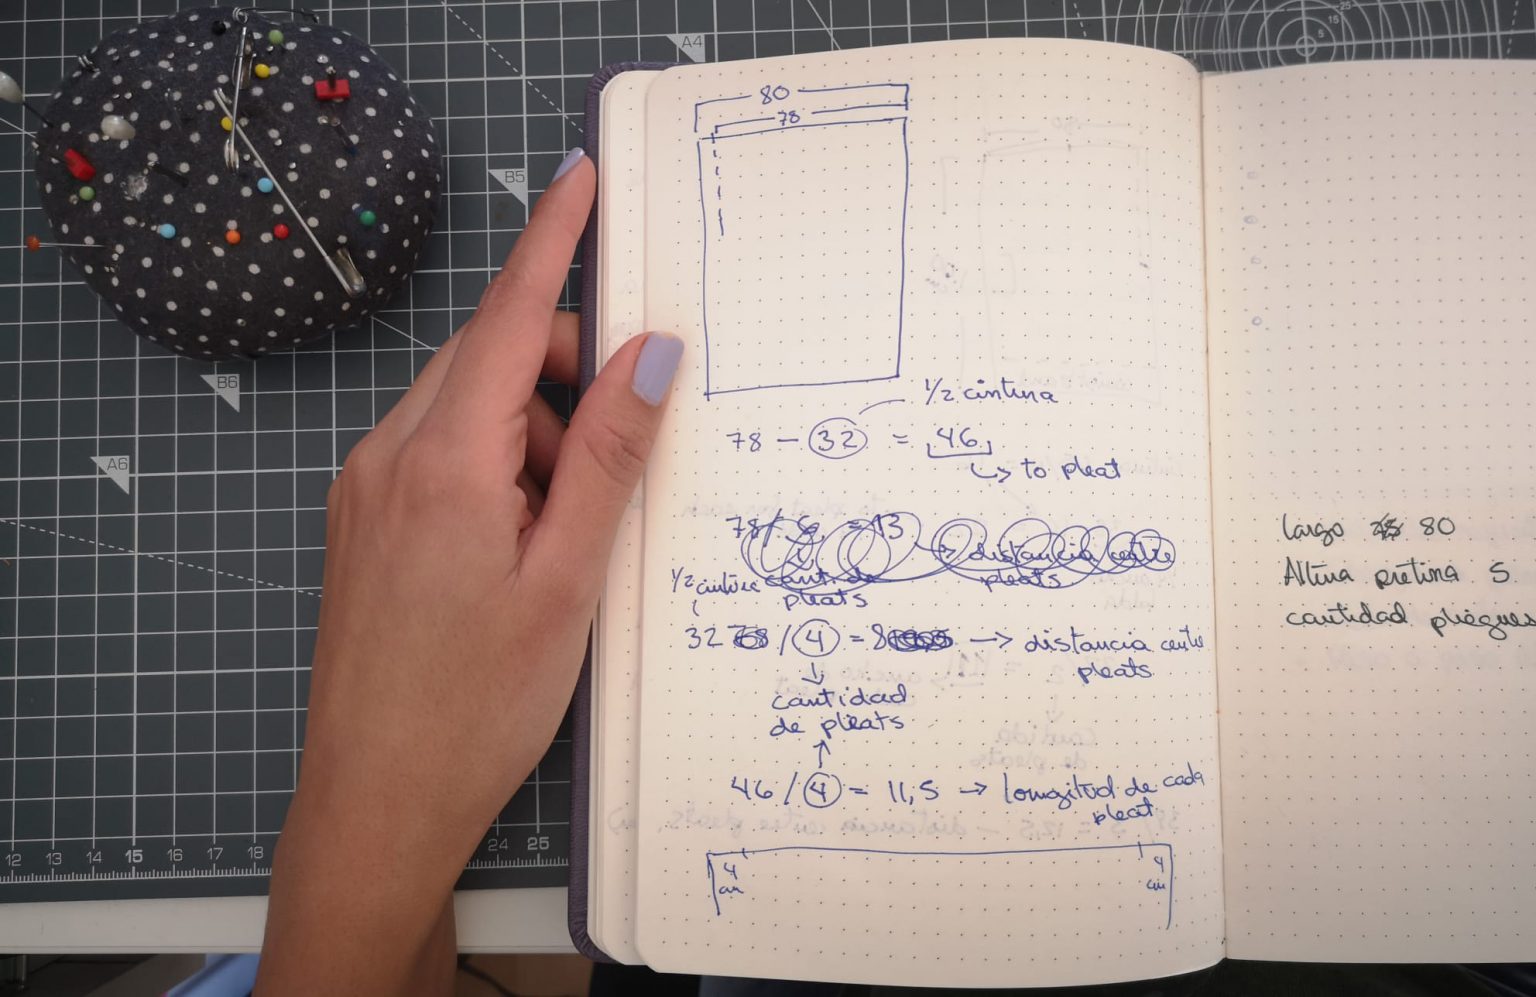 A4
B5
B6
A6
12 13 14 15 16 17 18
24 25
25
15
5
80
78
1/2 cintura
78 - 32 = 46
to pleat
78/6 = 13
distancia entre
pleats
1/2 cintura
cant. de
pleats
32 / 4 = 8 → distancia entre
pleats
cantidad
de pleats
46 / 4 = 11,5 → longitud de cada
pleat
4
cm
4
cm
largo 80
Altura pretina 5
cantidad pliegues